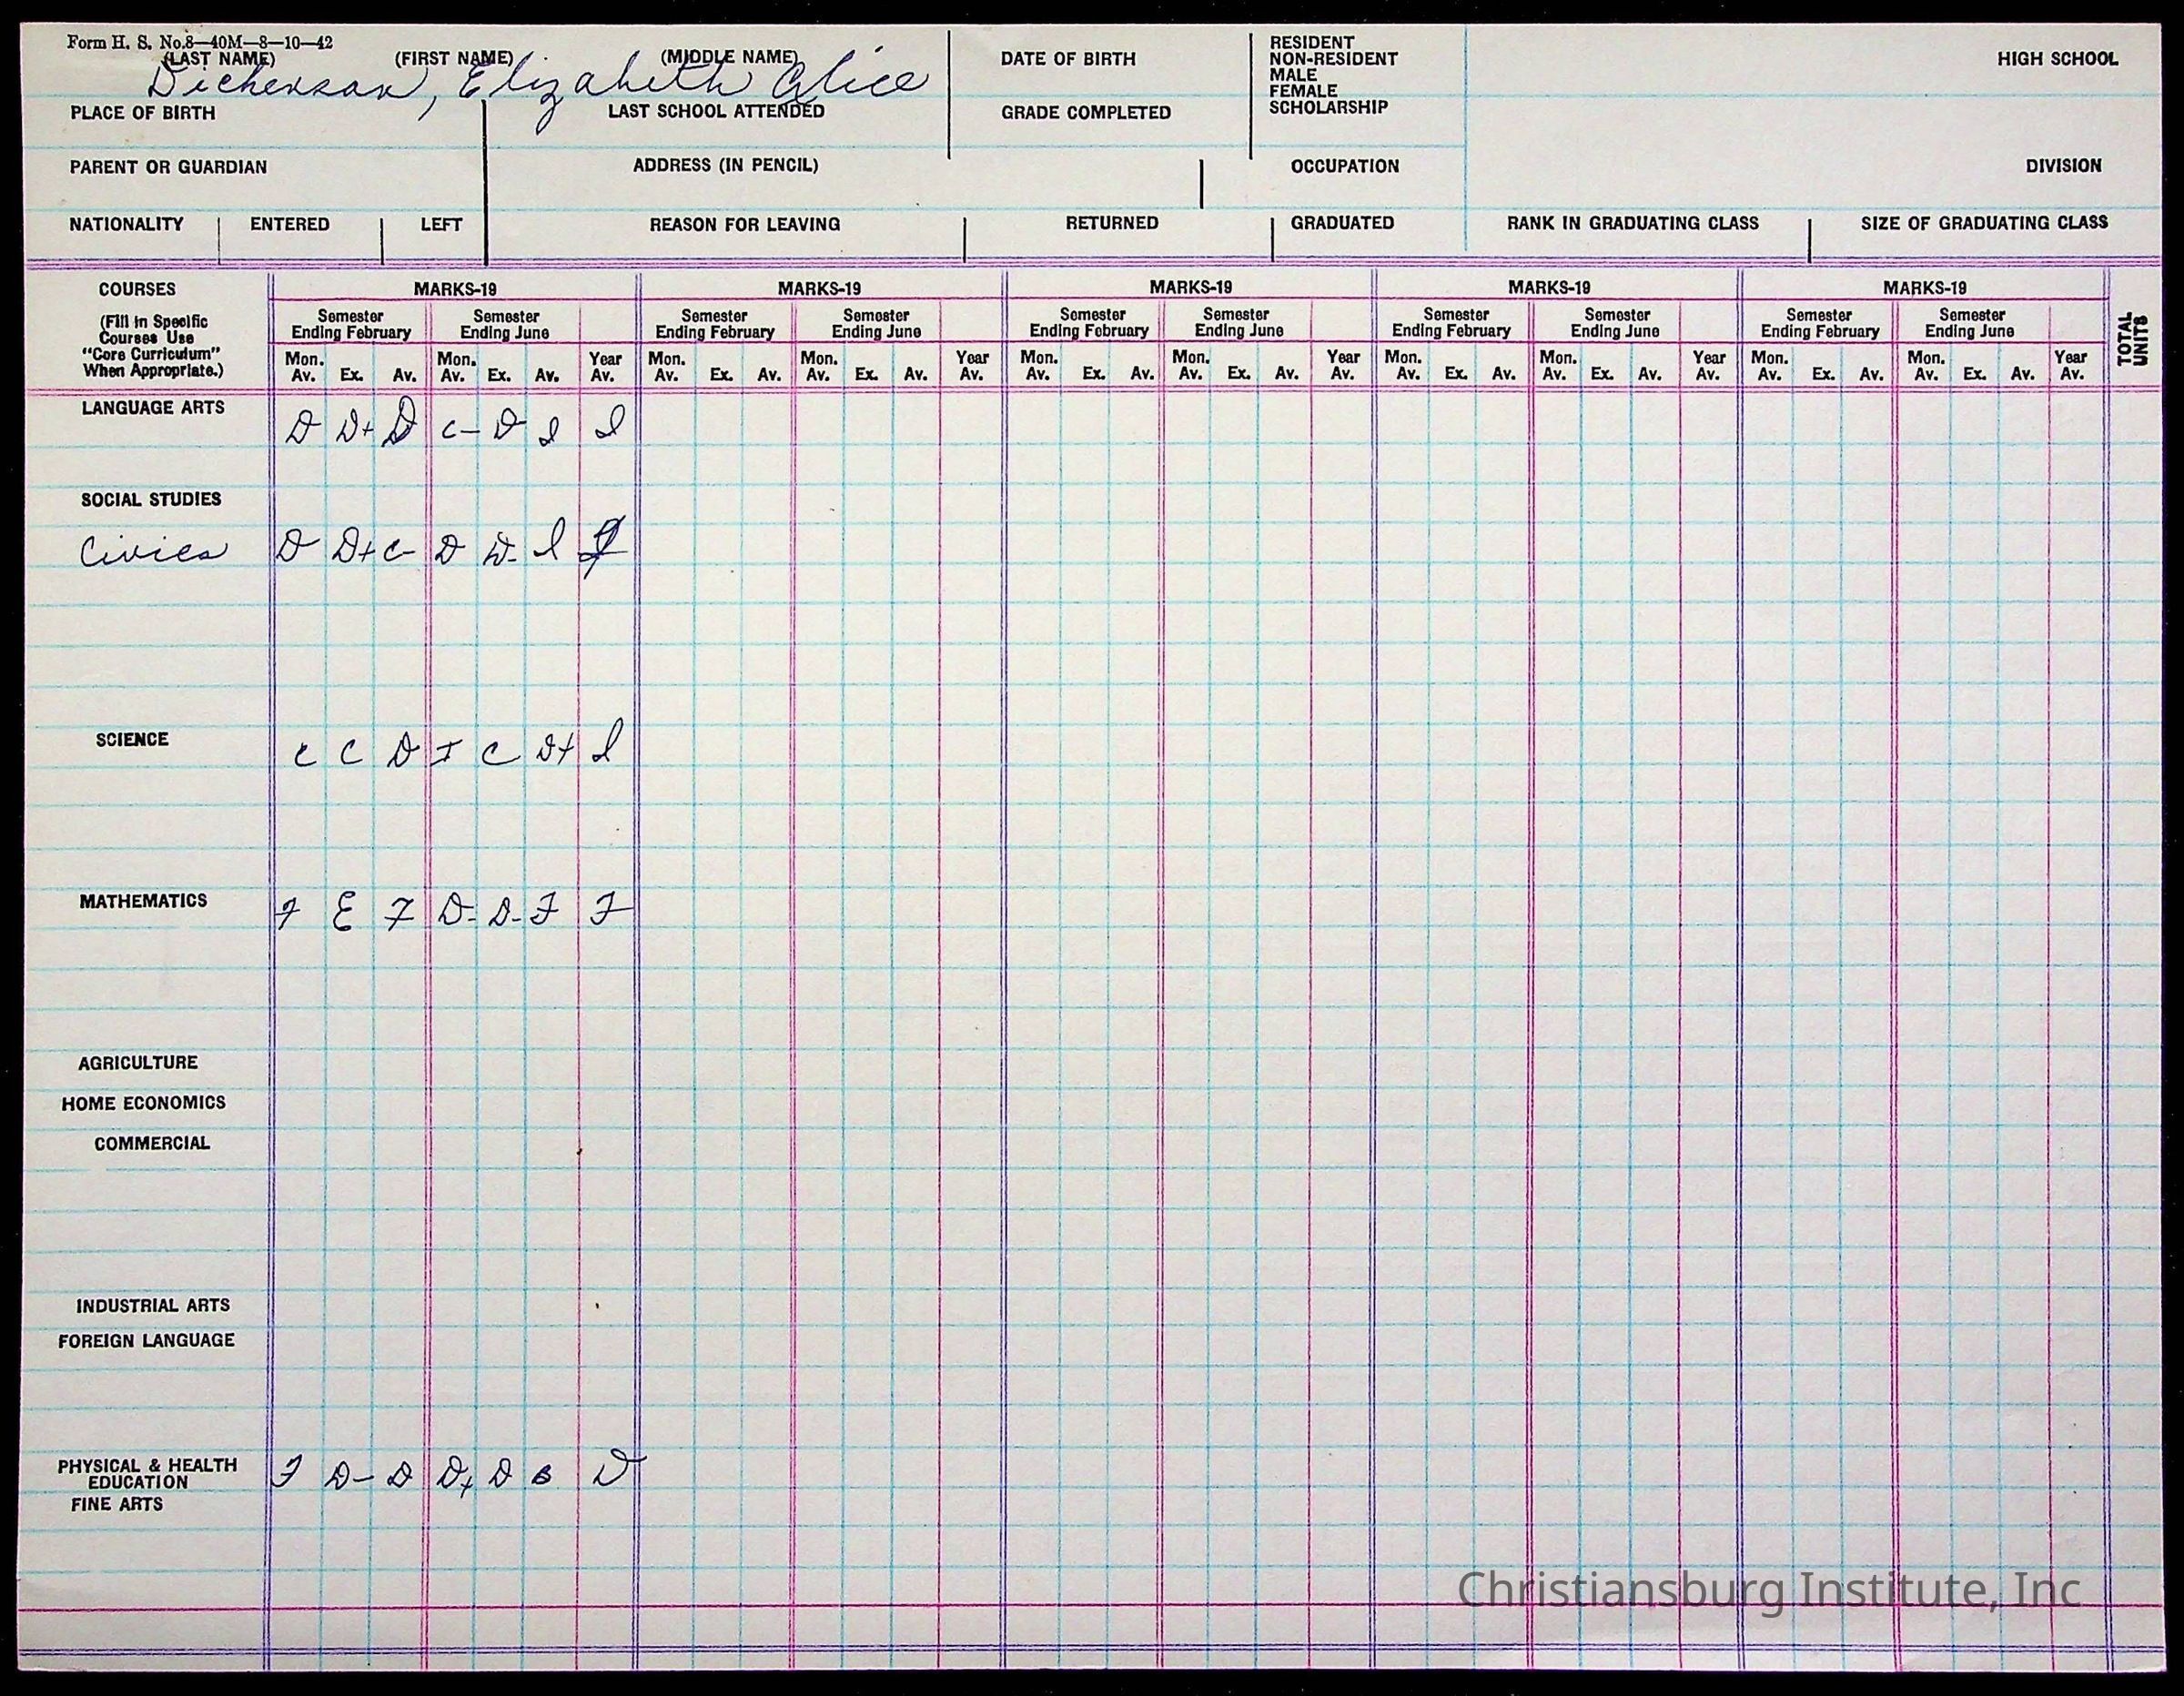 Form H. S. No.8—40M—8—10—42
(LAST NAME) (FIRST NAME) (MIDDLE NAME) DATE OF BIRTH
Dickerson, Elizabeth Alice
RESIDENT
NON-RESIDENT
MALE
FEMALE
SCHOLARSHIP
HIGH SCHOOL
PLACE OF BIRTH LAST SCHOOL ATTENDED GRADE COMPLETED
PARENT OR GUARDIAN ADDRESS (IN PENCIL) OCCUPATION DIVISION
NATIONALITY ENTERED LEFT REASON FOR LEAVING RETURNED GRADUATED RANK IN GRADUATING CLASS SIZE OF GRADUATING CLASS
COURSES MARKS-19 MARKS-19 MARKS-19 MARKS-19 MARKS-19
(Fill in Specific
Courses Use
"Core Curriculum"
When Appropriate.)
Semester Semester Semester Semester Semester Semester Semester Semester Semester Semester
Ending February Ending June Ending February Ending June Ending February Ending June Ending February Ending June Ending February Ending June
Mon. Mon. Year Mon. Mon. Year Mon. Mon. Year Mon. Mon. Year Mon. Mon. Year
Av. Ex. Av. Av. Ex. Av. Av. Av. Ex. Av. Av. Ex. Av. Av. Av. Ex. Av. Av. Ex. Av. Av. Av. Ex. Av. Av. Ex. Av. Av. Av. Ex. Av. Av. Ex. Av. Av.
TOTAL UNITS
LANGUAGE ARTS
D D+ D C- D
SOCIAL STUDIES
Civics D D+ C- D D-
SCIENCE
C C D I C D+
MATHEMATICS
F E F D- D- F F
AGRICULTURE
HOME ECONOMICS
COMMERCIAL
INDUSTRIAL ARTS
FOREIGN LANGUAGE
PHYSICAL & HEALTH
EDUCATION
F D- D D+ D D
FINE ARTS
Christiansburg Institute, Inc